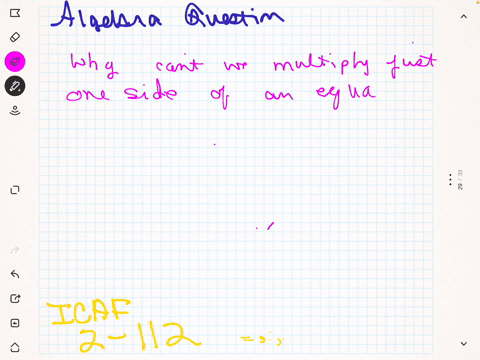 Algebra Question
Why cant we multiply just
one side of an equa
ICAF
2-112
29 / 31